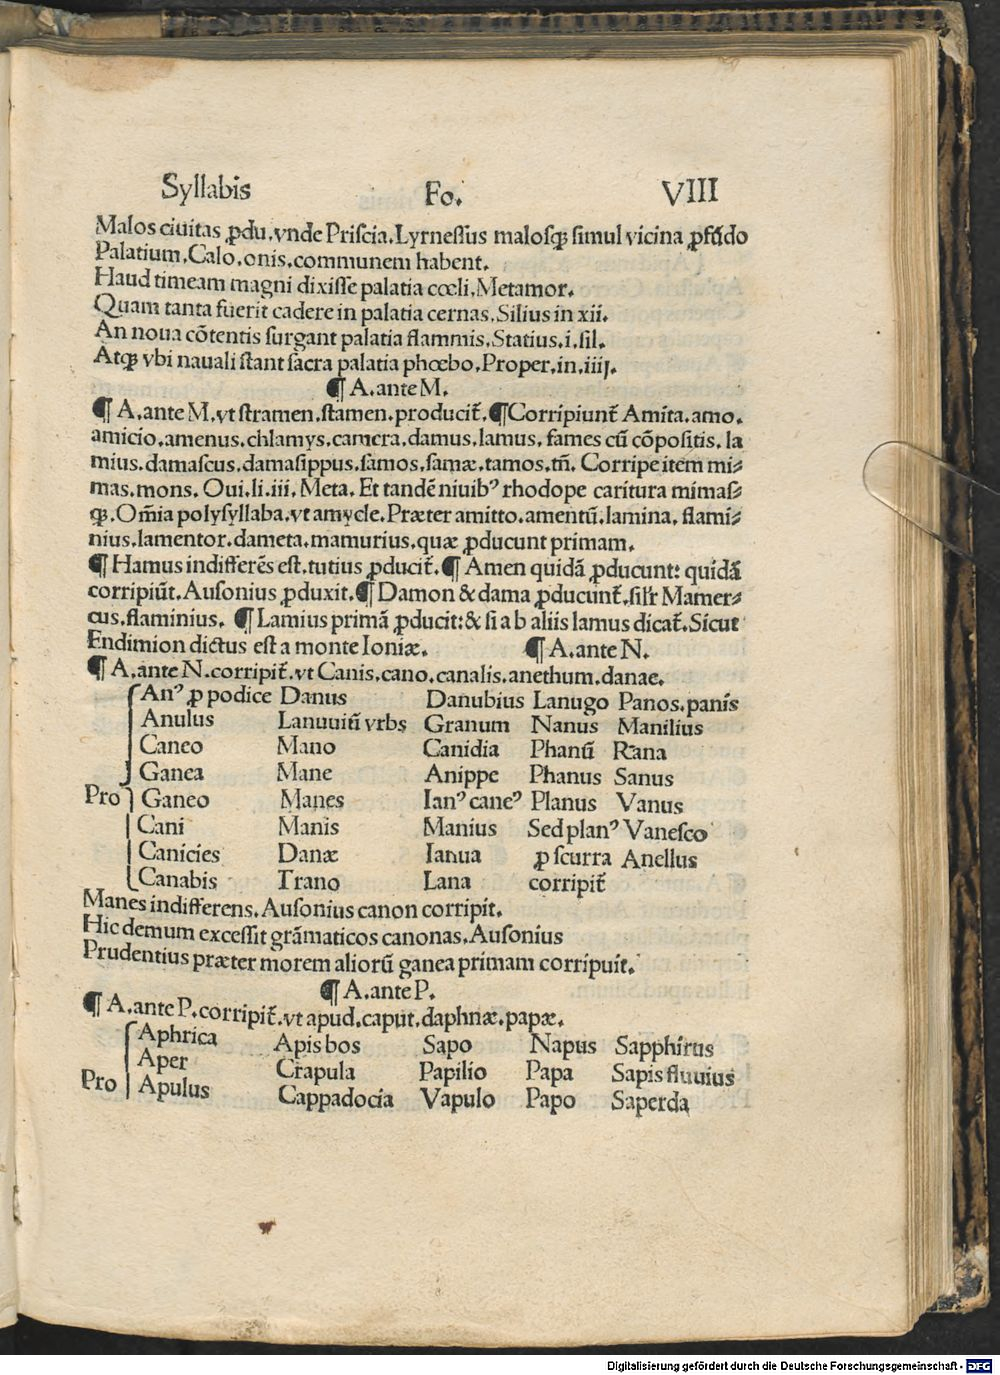 Syllabis Fo. VIII
Malos ciuitas ꝓdu.vnde Priſcia.Lyrneſſus maloſqꝫ ſimul vicina ꝓfūdo
Palatium.Calo.onis.communem habent.
Haud timeam magni dixiſſe palatia cœli.Metamor.
Quam tanta fuerit cadere in palatia cernas.Silius in xii.
An noua cōtentis ſurgant palatia flammis.Statius.i.ſil.
Atqꝫ vbi nauali ſtant ſacra palatia phœbo.Proper.in.iiij.
¶ A.ante M.
¶ A.ante M.vt ſtramen.ſtamen.producit̄.¶Corripiunt̄ Amita.amo.
amicio.amenus.chlamys.camera.damus.lamus. fames cū cōpoſitis. la
mius.damaſcus.damaſippus.ſamos.ſamæ.tamos.tñ. Corripe item mi⸗
mas.mons. Oui.li.iii. Meta. Et tandē niuibꝰ rhodope caritura mimaſ⸗
qꝫ.Om̄ia polyſyllaba.vt amycle.Præter amitto.amentū.lamina. flami⸗
nius.lamentor.dameta.mamurius.quæ ꝓducunt primam.
¶ Hamus indifferēs eſt.tutius ꝓducit̄.¶ Amen quidā ꝓducunt: quidā
corripiūt.Auſonius ꝓduxit.¶ Damon & dama ꝓducunt̄.ſilr̄ Mamer⸗
cus.flaminius. ¶ Lamius primā ꝓducit:& ſi a b aliis lamus dicat̄.Sicut
Endimion dictus eſt a monte Ioniæ. ¶ A.ante N.
¶ A.ante N.corripit̄.vt Canis.cano.canalis.anethum.danae.
Anꝰ ꝓ podice Danus Danubius Lanugo Panos.panis
Anulus Lanuuitū vrbs Granum Nanus Manilius
Caneo Mano Canidia Phanū Rana
Ganea Mane Anippe Phanus Sanus
Pro Ganeo Manes Ianꝰ caneꝰ Planus Vanus
Cani Manis Manius Sed planꝰ Vaneſco
Canicies Danæ Ianua ꝓ ſcurra Anellus
Canabis Trano Lana corripit̄
Manes indifferens.Auſonius canon corripit.
Hic demum exceſſit grāmaticos canonas.Auſonius
Prudentius præter morem aliorū ganea primam corripuit.
¶ A.ante P.
¶ A.ante P.corripit̄.vt apud.caput.daphnæ.papæ.
Aphrica Apis bos Sapo Napus Sapphirus
Aper Crapula Papilio Papa Sapis fluuius
Pro Apulus Cappadocia Vapulo Papo Saperda
Digitalisierung gefördert durch die Deutsche Forschungsgemeinschaft - DFG